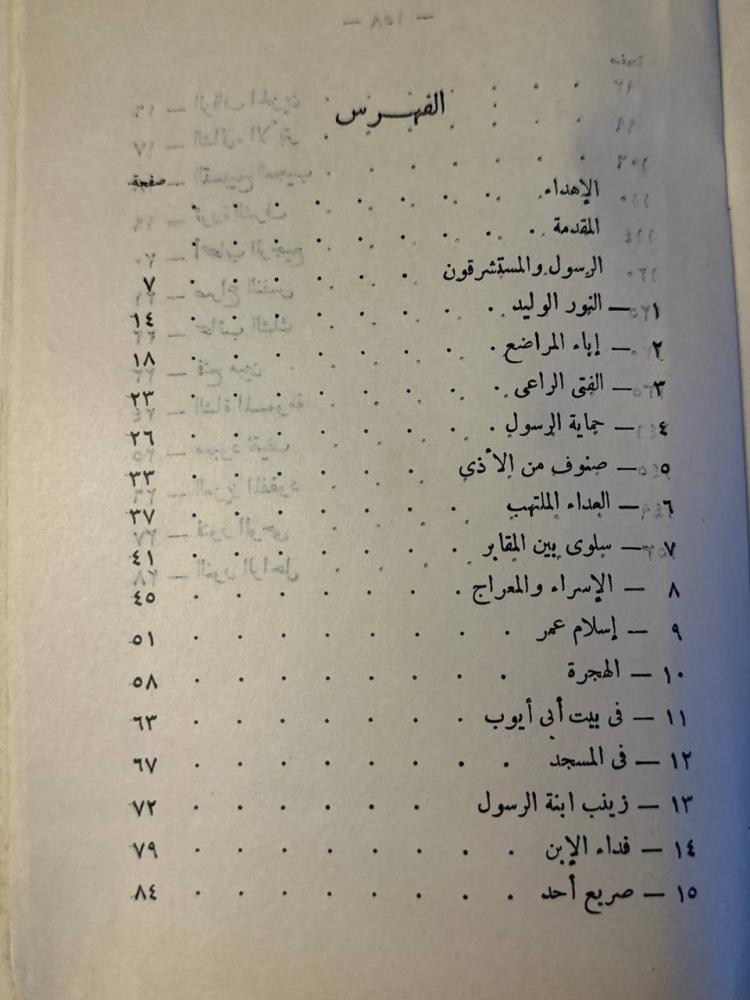 الفهرس
صفحة
الإهداء
المقدمة
الرسول والمستشرقون ٧
١ — النور الوليد ١٤
٢ — إباء المراضع ١٨
٣ — الفتى الراعى ٢٣
٤ — حماية الرسول ٢٦
٥ — صنوف من الأذى ٣٣
٦ — العداء الملتهب ٣٧
٧ — سلوى بين المقابر ٤١
٨ — الإسراء والمعراج ٤٥
٩ — إسلام عمر ٥١
١٠ — الهجرة ٥٨
١١ — فى بيت أبى أيوب ٦٣
١٢ — فى المسجد ٦٧
١٣ — زينب ابنة الرسول ٧٢
١٤ — فداء الإبن ٧٩
١٥ — صريع أحد ٨٤